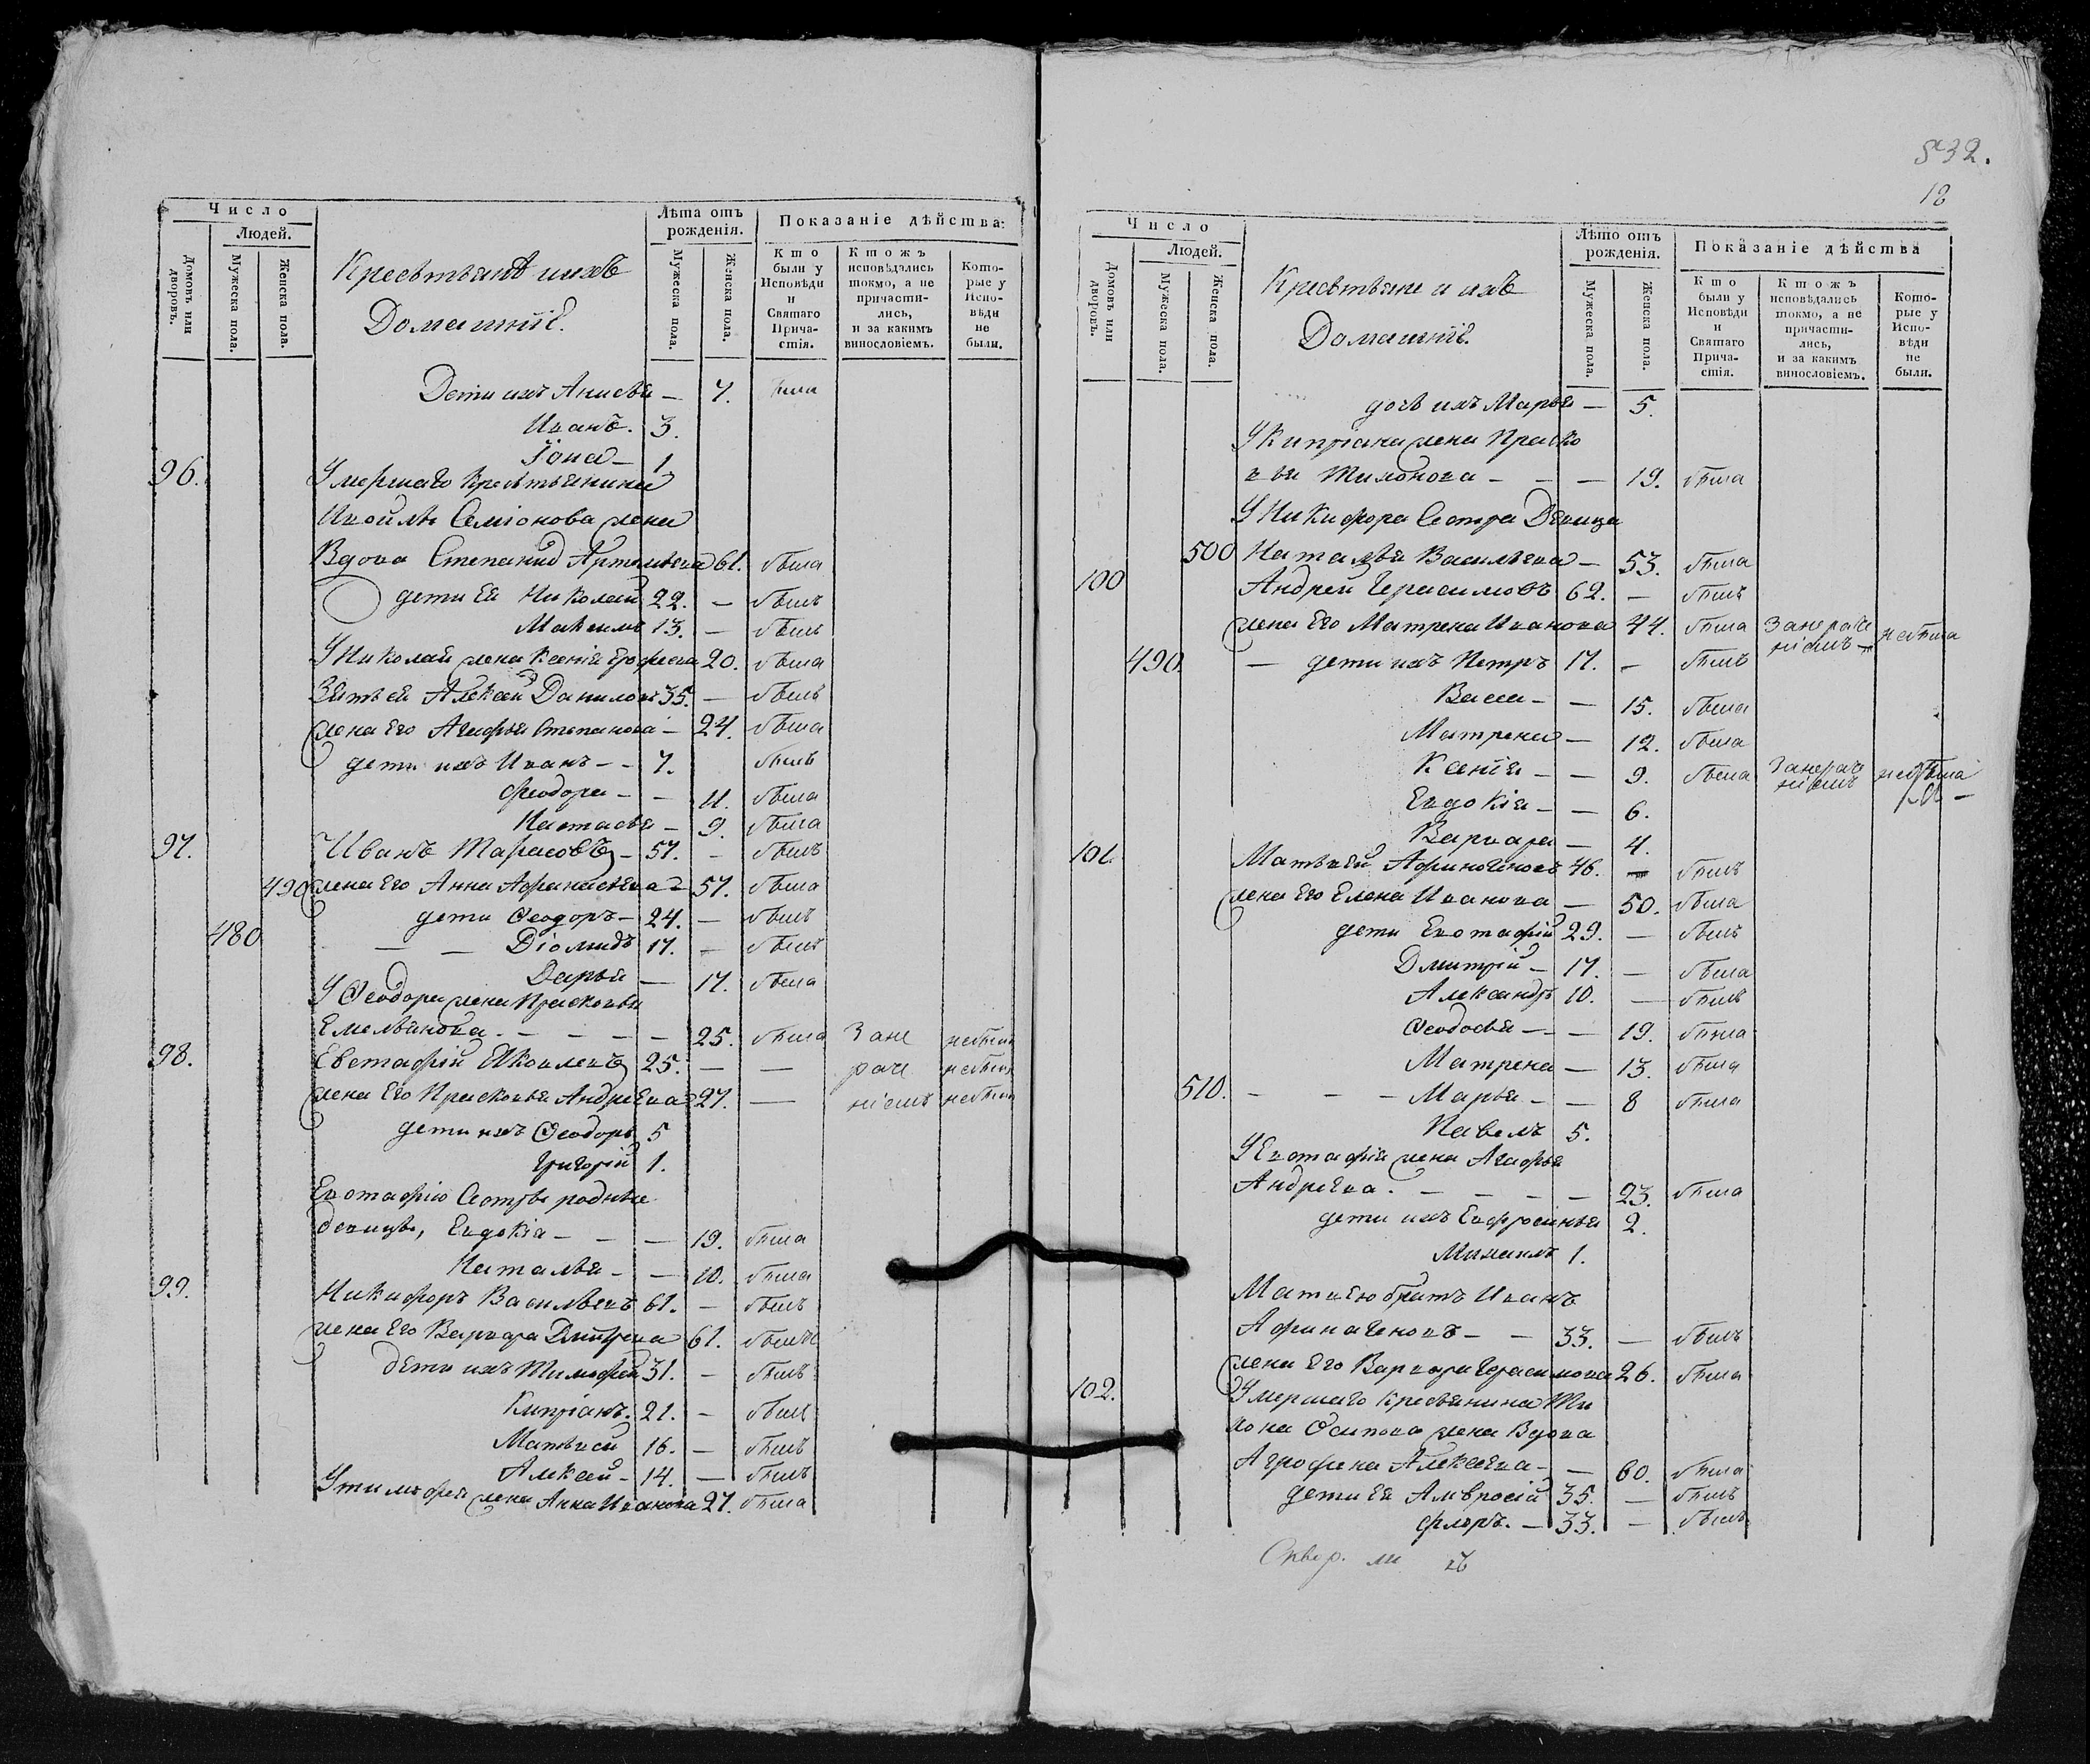 Число
Людей.
Домовъ или дворовъ.
Мужеска пола.
Женска пола.
Крестьянѣ и ихъ
Домашнїѣ.
Лѣта отъ рожденія.
Мужеска пола.
Женска пола.
Показаніе дѣйства:
Кто были у Исповѣди и Святаго Причастія.
Ктожъ исповѣдались токмо, а не причастились, и за какимъ винословіемъ.
Которые у Исповѣди не были.
Дети ихъ Анисья — 7. была
Иванъ. 3.
Їона — 1
96. Умершаго Крестьянина
Семїонова жена
Вдова Степанид Артемьева 61. была
дети Ея Николай 22. — былъ
Максимъ 13. — былъ
У Николая жена Ксенїя Ерофеева 20. была
Зять ея Алексей Данилов 35. — былъ
жена Его Агафья Степанова — 24. была
дети ихъ Иванъ — 7. былъ
Феодора — — 11. была
Настасья — 9. была
97. Иванъ Тарасовъ — 57. — былъ
490 жена Его Анна Афанасьева — 57. была
дети Ѳеодоръ — 24. — былъ
480 — — Дїомидъ 17. — былъ
Дарья — 17. была
У Ѳеодора жена Прасковья
Емельянова. — — — — 25. была Зане небыла
98. Евстафїй Яковлевъ 25. — — раче небылъ
жена Его Прасковья Андреева 27. — нїемъ небыла
дети ихъ Ѳеодоръ 5
Григорїй 1.
Евстафїю Сестры родные
девицы, Евдокїа — — — 19. была
Наталья — — 10. была
99. Никифоръ Васильевъ 61. — былъ
жена Его Варвара Дмитрева 61. былъ
дети ихъ Тимофей 31. — былъ
Кипрїанъ. 21. — былъ
Матвей 16. — былъ
Алексей — 14. — былъ
У тимофея жена Анна Иванова 27. была
532.
18
Число
Людей.
Домовъ или дворовъ.
Мужеска пола.
Женска пола.
Крестьяне и ихъ
Домашнїѣ.
Лѣто отъ рожденія.
Мужеска пола.
Женска пола.
Показаніе дѣйства
Кто были у Исповѣди и Святаго Причастія.
Ктожъ исповѣдались токмо, а не причастились, и за какимъ винословіемъ.
Которые у Исповѣди не были.
дочь ихъ Марья — 5.
У Кипрїана жена Праско
вья Тимонова — — — 19. была
У Никифора Сестра Девица
500 Наталья Васильева — 53. была
100 Андрей Герасимовъ 62. — былъ
жена Его Матрена Иванова 44. была Занераче нїемъ — небыла
490. — дети ихъ Петръ 17. — былъ
Васса — — 15. была
Матрена — 12. была
Ксенїя — — 9. была Занераче нїемъ небыла
Евдокїя — — 6.
Варвара — 4.
101. Матвей Афиногеновъ 46. — былъ
жена Его Елена Иванова — 50. была
дети Евстафїй 29. — былъ
Дмитрїй — 17. — была
Александръ 10. — былъ
Ѳеодосья — — 19. была
Матрена — 13. была
510. — — — Марья — — 8 была
Павелъ 5.
У Евстафїя жена Агафья
Андреева. — — — — 23. была
дети ихъ Евфросинья 2.
Михаилъ 1.
Матвею братъ Иванъ
Афинагеновъ — — 33. — былъ
жена Его Варвара Герасимова 26. была
102. Умершаго Кресьянина Ти
мона Осипова жена Вдова
Агрофена Алексеева — — 60. была
дети Ея Амвросїй 35. — былъ
Флоръ. — 33. — былъ